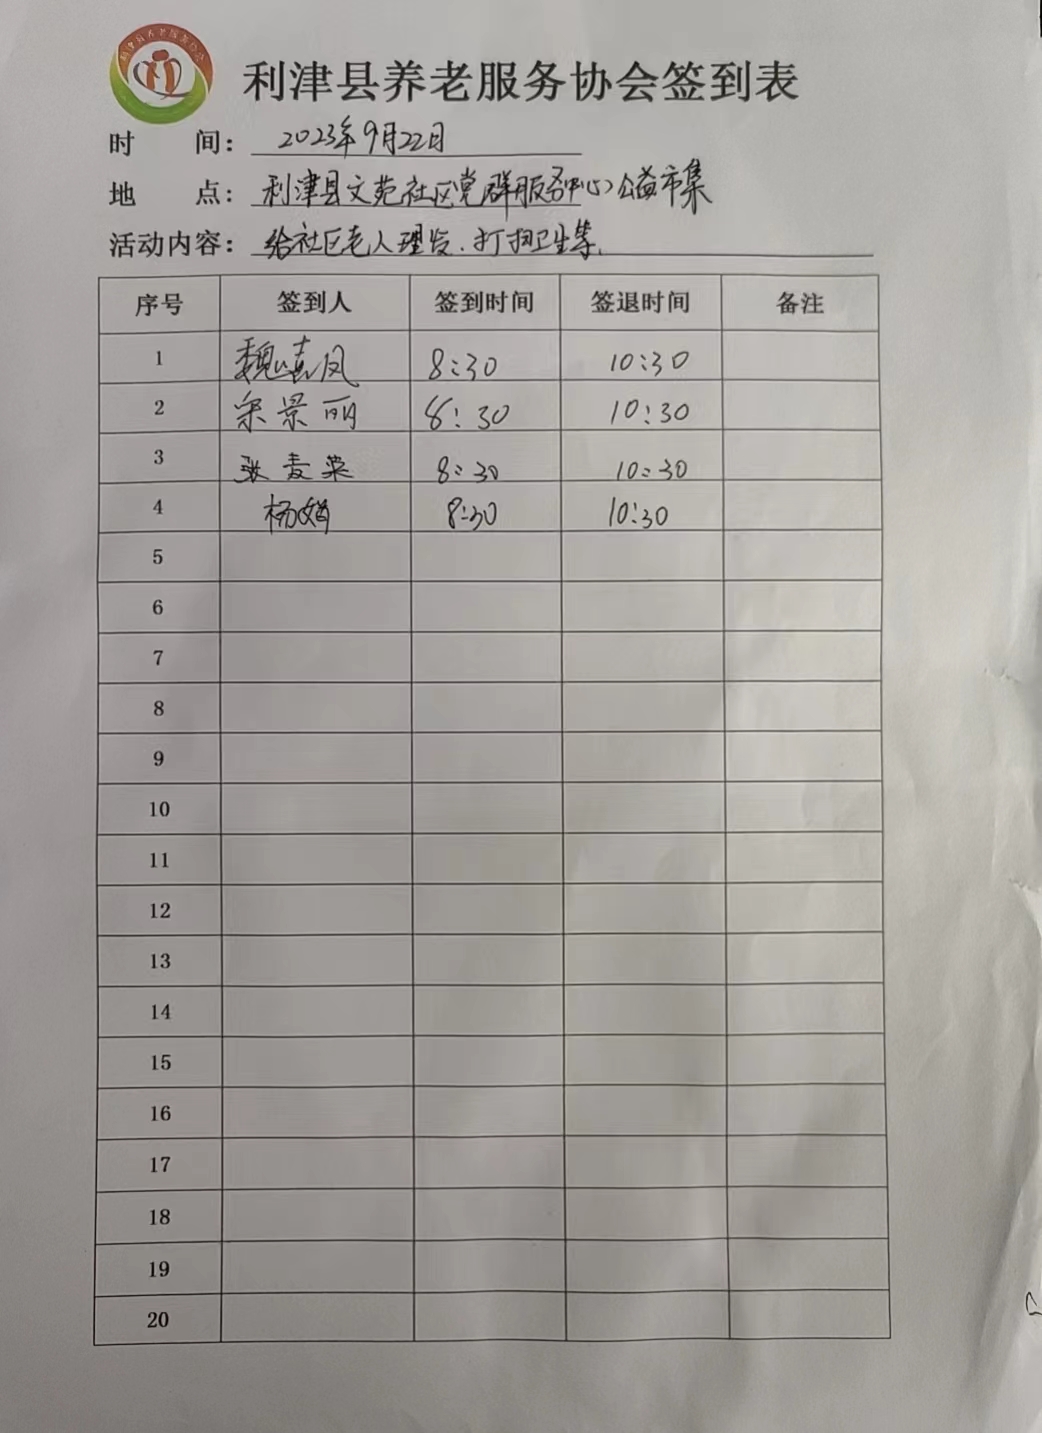 利津县养老服务协会
利津县养老服务协会签到表
时 间： 2023年9月22日
地 点： 利津县文苑社区党群服务中心公益市集
活动内容： 给社区老人理发、打扫卫生等、
序号 签到人 签到时间 签退时间 备注
1 魏嘉凤 8:30 10:30
2 景丽 8:30 10:30
3 张麦荣 8:30 10:30
4 杨娟 8:30 10:30
5
6
7
8
9
10
11
12
13
14
15
16
17
18
19
20